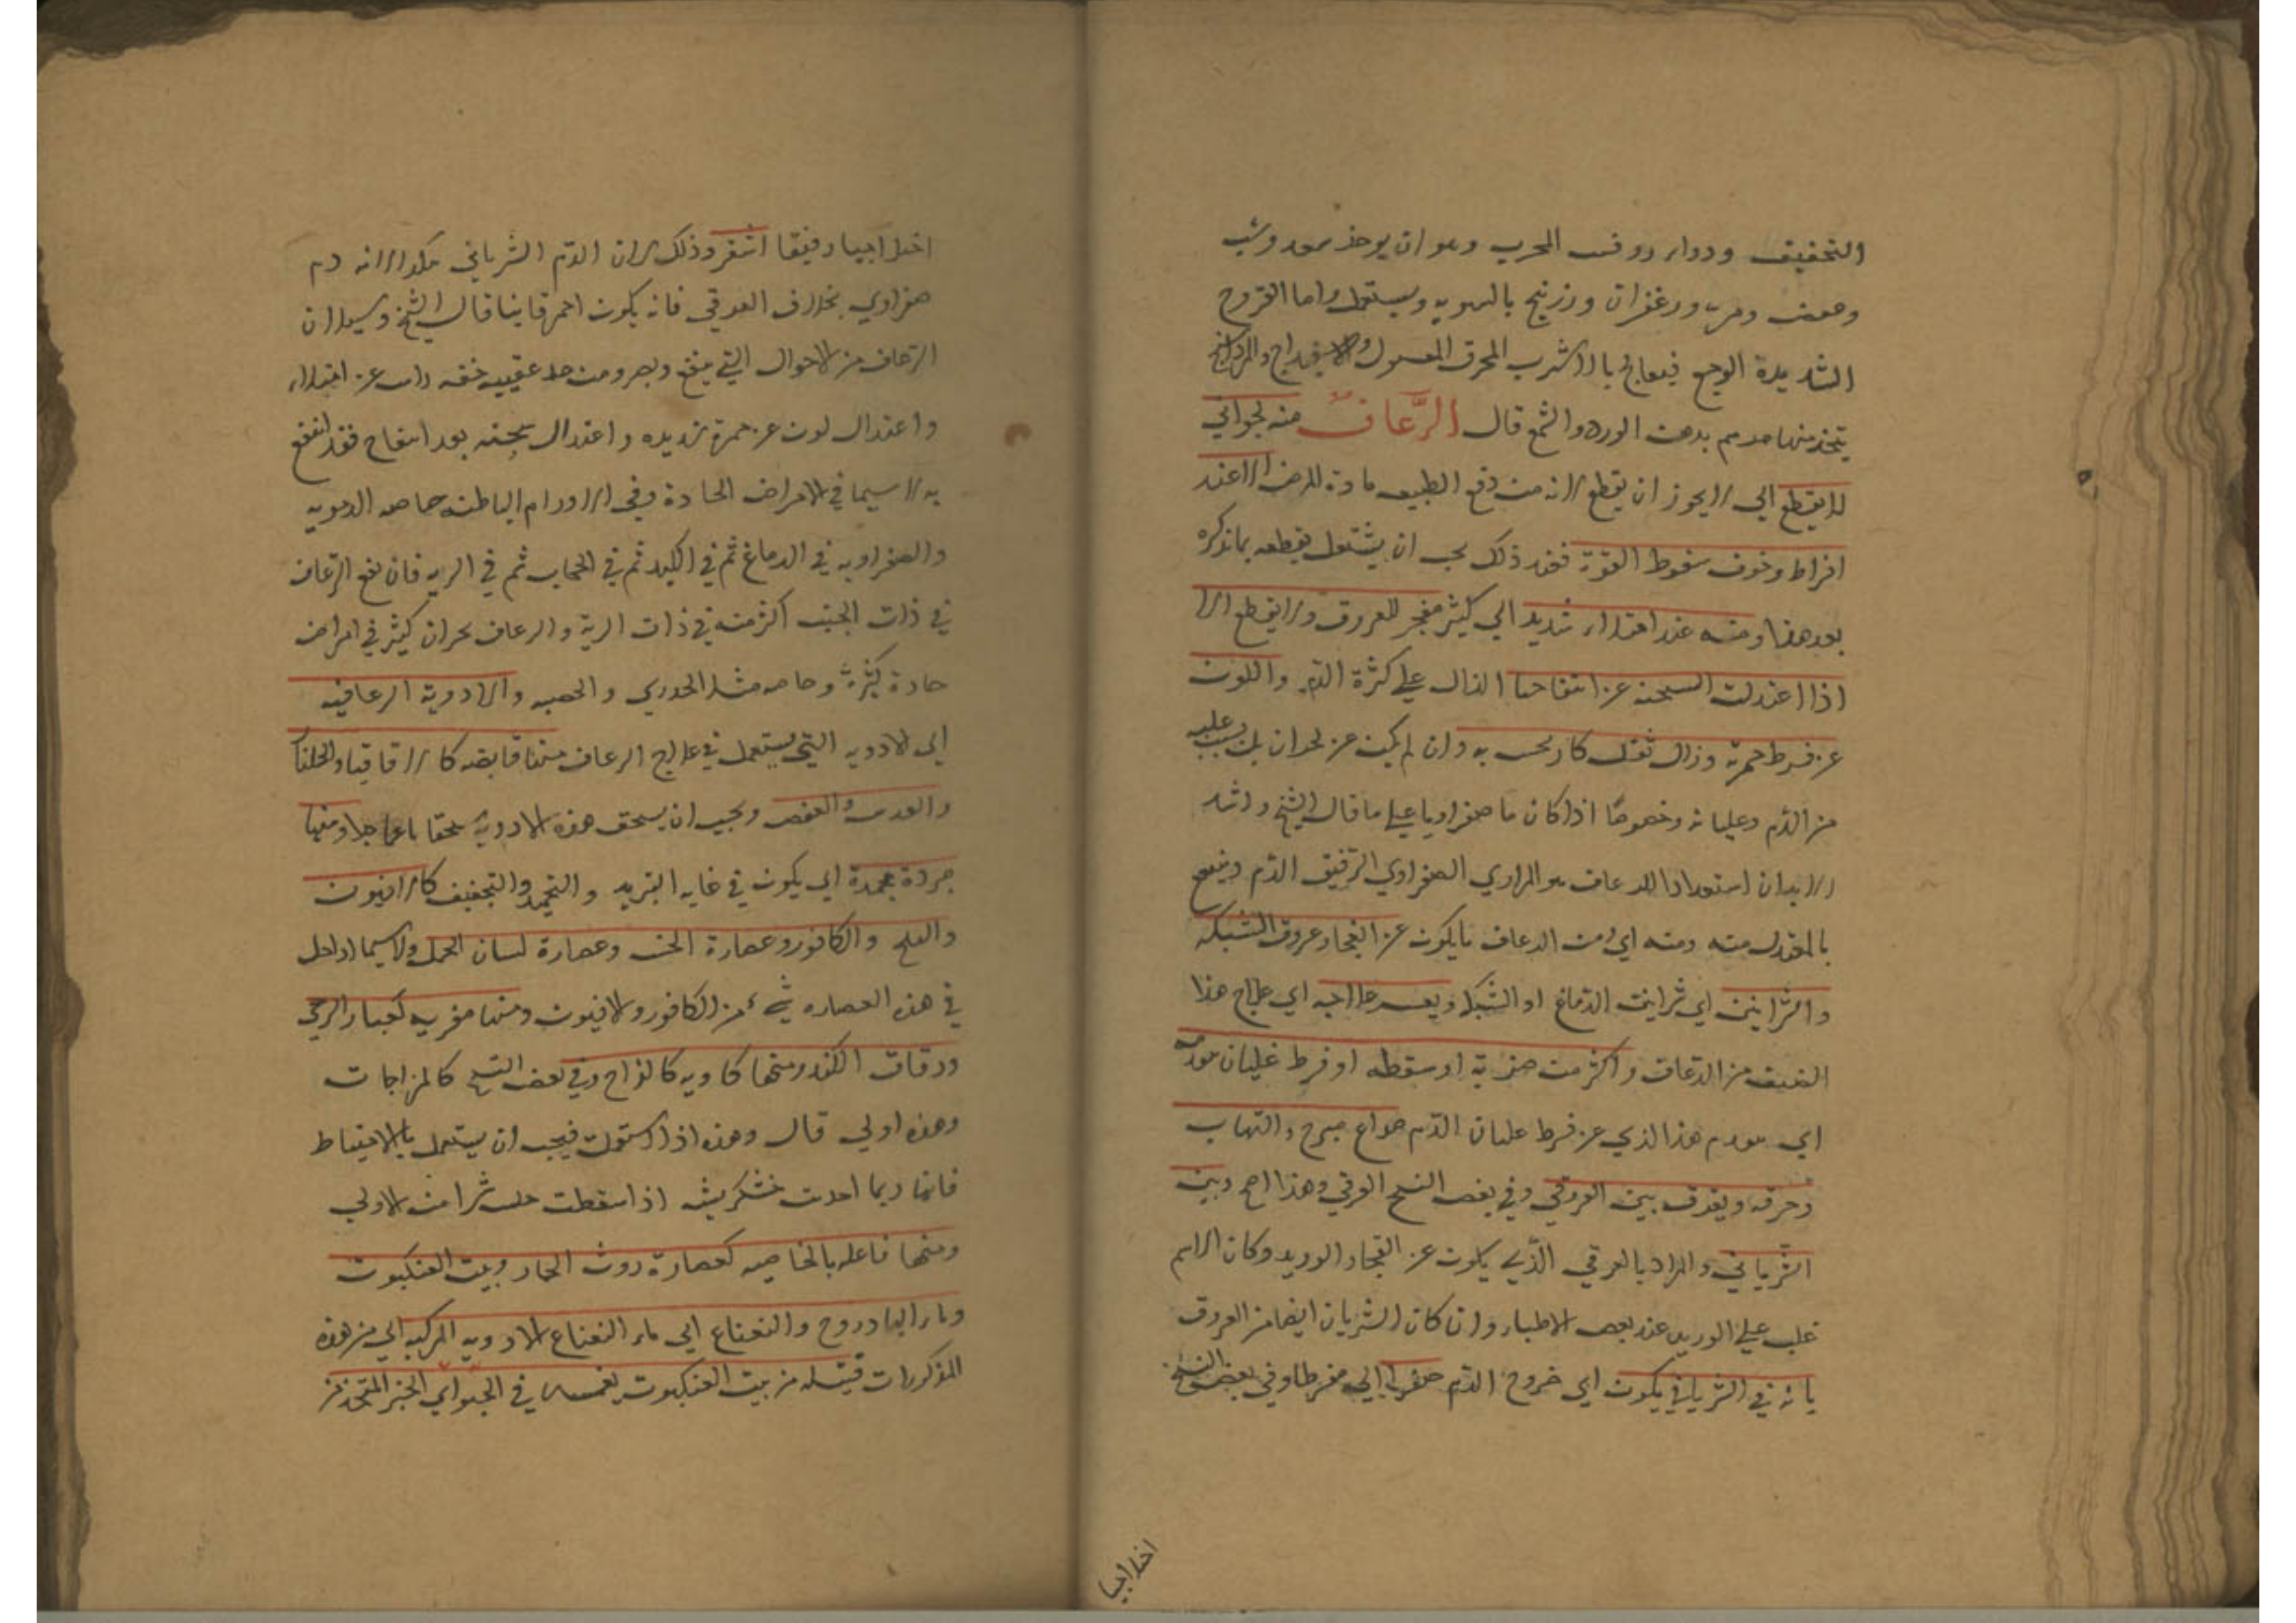 التخفيف ودواء روفس المجرب وهو ان يوخذ سعد وشب
وعفص ومر وزعفران وزرنيخ بالسويه ويستعمل واما القروح
الشديدة الوجع فيعالج بالاسرب المحرق المغسول والاسفيداج والمرداسنج
يتخذ منها مرهم بدهن الورد والشمع قال الرعاف منه بحراني
لا يقطع اي لا يجوز ان يقطع لانه من دفع الطبيعه مادة المرض الا عند
افراط وخوف سقوط القوة فعند ذلك يجب ان يشتغل بقطعه بما نذكره
بعد هذا ومنه عند امتلاء شديد اي كثير مفجر للعروق ولا يقطع الا
اذا اعتدلت السحنه عن انتفاخها الدال علي كثرة الدم واللون
عن فرط حمرته وزال ثقل كان يحس به وان لم يكن عن بحران بل بسبب غلبه
من الدم وغليانه وخصوصا اذا كان ما صفراويا علي ما قال الشيخ واشد
الابدان استعدادا للرعاف هو المراري الصفراوي الرقيق الدم وينتفع
بالمعتدل منه ومنه اي من الرعاف ما يكون عن انفجار عروق الشبكه
والشرايين اي شرايين الدماغ او الشبكة ويعسر علاجه اي علاج هذا
الصنف من الرعاف واكثر من ضربة او سقطه او فرط غليان
اي هذا الذي عن فرط غليان الدم صداع مبرح والتهاب
وحرقه ويفرق بين العروقي وفي بعض النسخ العرقي وهذا اصح وبين
الشرياني والمراد بالعرقي الذي يكون عن انفجار الوريد وكان الاسم
غلب علي الوريد عند بعض الاطباء وان كان الشريان ايضا من العروق
بانه في الشرياني يكون اي خروج الدم حفرا اي مفرطا وفي بعض النسخ
اخلاجيا
اخلاجيا رقيقا اشقر وذلك لان الدم الشرياني هكذا لانه دم
صفراوي بخلاف العروقي فانه يكون احمر قانيا قال الشيخ وسيلان
الرعاف من الاحوال التي ينفع ويضر ومن وجد عقيبه خفه راس عن امتلاء
واعتدال لون عن حمرة شديده واعتدال سحنه بعد انتفاخ فقد انتفع
به لا سيما في الامراض الحادة وفي الاورام الباطنه خاصه الدمويه
والصفراويه في الدماغ ثم في الكبد ثم في الحجاب ثم في الريه فان نفع الرعاف
في ذات الجنب اكثر منه في ذات الرية والرعاف بحران كثير في امراض
حادة كثيرة وخاصه مثل الجدري والحصبه والادوية الرعافيه
اي الادويه التي يستعمل في علاج الرعاف منها قابضه كالاقاقيا والجلنار
والعدس والعفص ويجب ان يسحق هذه الادوية سحقا ناعما جدا ومنها
مبردة مجمدة اي يكون في غايه التبريد والتجميد والتجفيف كالافيون
والبنج والكافور وعصارة الخس وعصارة لسان الحمل ولا سيما اذا حل
في هذه العصاره شيء من الكافور والافيون ومنها مغريه كغبار الرحي
ودقاق الكندر ومنها كاويه كالزاج وفي بعض النسخ كالزاجات
وهذه اولي قال وهذه اذا استعملت فيجب ان يستعمل بالاحتياط
فانها ربما احدثت خشكريشه اذا سقطت جلبت شرا من الاولي
ومنها فاعله بالخاصيه كعصارة روث الحمار وبيت العنكبوت
وماء البادروج والنعناع اي ماء النعناع الادويه المركبه اي من هذه
المذكورات فتيله من بيت العنكبوت يغمس في الحبر اي الحبر المتخذ من